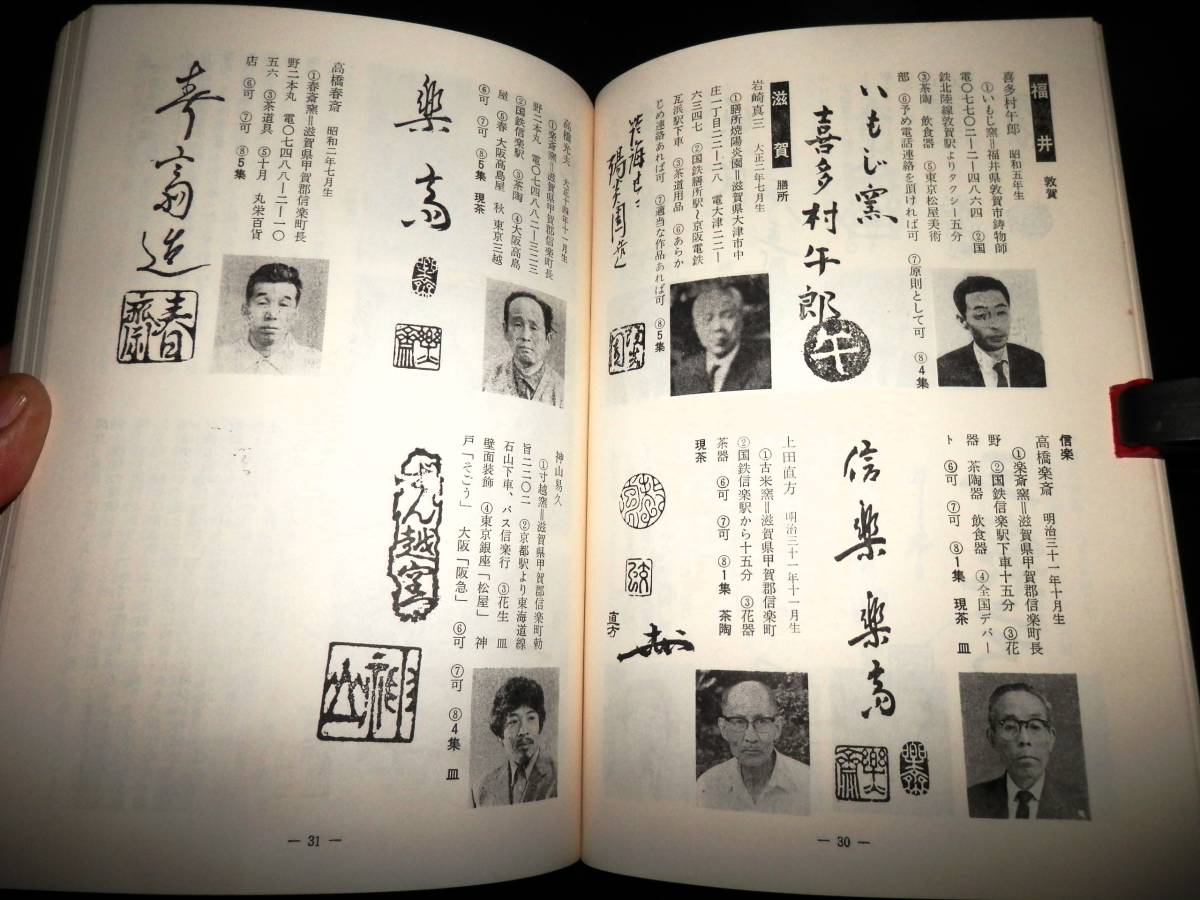 福井 敦賀
喜多村午郎 昭和五年生
①いもじ窯＝福井県敦賀市鋳物師
電〇七七〇二ー二ー四八六四 ②国
鉄北陸線敦賀駅よりタクシー五分
③茶陶 飲食器 ⑤東京松屋美術
部 ⑥予め電話連絡を頂ければ可 ⑦原則として可 ⑧4集
いもじ窯
喜多村午郎
午
滋賀 膳所
岩崎真三 大正二年七月生
①膳所焼陽炎園＝滋賀県大津市中
庄一丁目二二ー二八 電大津二二ー
六三四七 ②国鉄膳所駅〜京阪電鉄
瓦浜駅下車 ③茶道用品 ⑥あらか
じめ連絡あれば可 ⑦適当な作品あれば可 ⑧5集
信楽
高橋楽斎 明治三十一年十月生
①楽斎窯＝滋賀県甲賀郡信楽町長
野 ②国鉄信楽駅下車十五分 ③花
器 茶陶器 飲食器 ④全国デパー
ト ⑥可 ⑦可 ⑧1集 現茶 皿
信楽 楽斎
上田直方 明治三十一年十一月生
①古米窯＝滋賀県甲賀郡信楽町
②国鉄信楽駅から十五分 ③花器
茶器 ⑥可 ⑦可 ⑧1集 茶陶
現茶
直方
— 30 —
高橋光夫 大正十四年十一月生
①楽斎窯＝滋賀県甲賀郡信楽町長
野二本丸 電〇七四八八二ー三二三
②国鉄信楽駅 ③茶陶 ④大阪高島
屋 ⑤春 大阪高島屋 秋 東京三越
⑥可 ⑦可 ⑧5集 現茶
楽斎
高橋春斎 昭和二年七月生
①春斎窯＝滋賀県甲賀郡信楽町長
野二本丸 電〇七四八八ー二ー一〇
五六 ③茶道具 ⑤十月 丸栄百貨
店 ⑥可 ⑦可 ⑧5集
春斎造
神山易久
①寸越窯＝滋賀県甲賀郡信楽町勅
旨二二〇二 ②京都駅より東海道線
石山下車、バス信楽行 ③花生 皿
壁面装飾 ④東京銀座「松屋」 神
戸「そごう」 大阪「阪急」 ⑥可 ⑦可 ⑧4集 皿
— 31 —